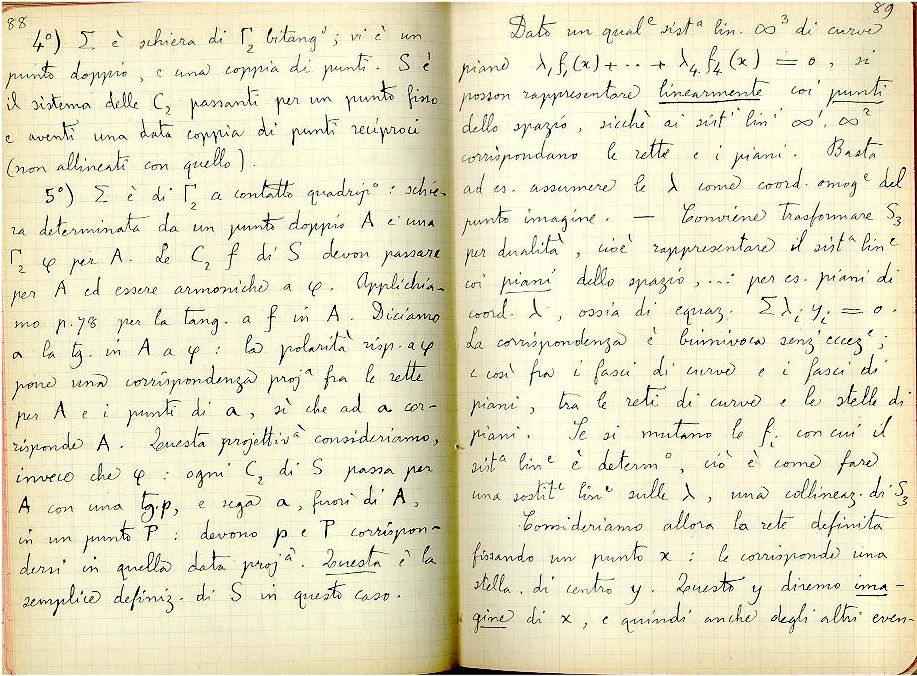 88
4º) Σ è schiera di Γ₂ bitangⁱ; vi è un
punto doppio, e una coppia di punti. S è
il sistema delle C₂ passanti per un punto fisso
e aventi una data coppia di punti reciproci
(non allineati con quello).
5º) Σ è di Γ₂ a contatto quadripº: schie-
ra determinata da un punto doppio A e una
Γ₂ φ per A. Le C₂ f di S devon passare
per A ed essere armoniche a φ. Applichia-
mo p. 78 per la tang. a f in A. Diciamo
a la tg. in A a φ: la polarità risp. a φ
pone una corrispondenza projᵃ fra le rette
per A e i punti di a, sì che ad a cor-
risponde A. Questa projettivᵃ consideriamo,
invece che φ: ogni C₂ di S passa per
A con una tg. p, e sega a, fuori di A,
in un punto P: devono p e P corrispon-
dersi in quella data projᵃ. Questa è la
semplice definiz. di S in questo caso.
89
Dato un qualᵉ sistᵃ lin. ∞³ di curve
piane λ₁f₁(x) + ··· + λ₄f₄(x) = 0, si
posson rappresentare linearmente coi punti
dello spazio, sicchè ai sistⁱ linⁱ ∞¹, ∞²
corrispondano le rette e i piani. Basta
ad es. assumere le λ come coord. omogᵉ del
punto imagine. — Conviene trasformare S₃
per dualità, cioè rappresentare il sistᵃ linᵉ
coi piani dello spazio, ...: per es. piani di
coord. λ, ossia di equaz. Σλᵢyᵢ = 0.
La corrispondenza è biunivoca senz'eccezⁱ;
e così fra i fasci di curve e i fasci di
piani, tra le reti di curve e le stelle di
piani. Se si mutano le fᵢ con cui il
sistᵃ linᵉ è determº, ciò è come fare
una sostitᵉ linᵉ sulle λ, una collineaz. di S₃
Consideriamo allora la rete definita
fissando un punto x: le corrisponde una
stella, di centro y. Questo y diremo ima-
gine di x, e quindi anche degli altri even-